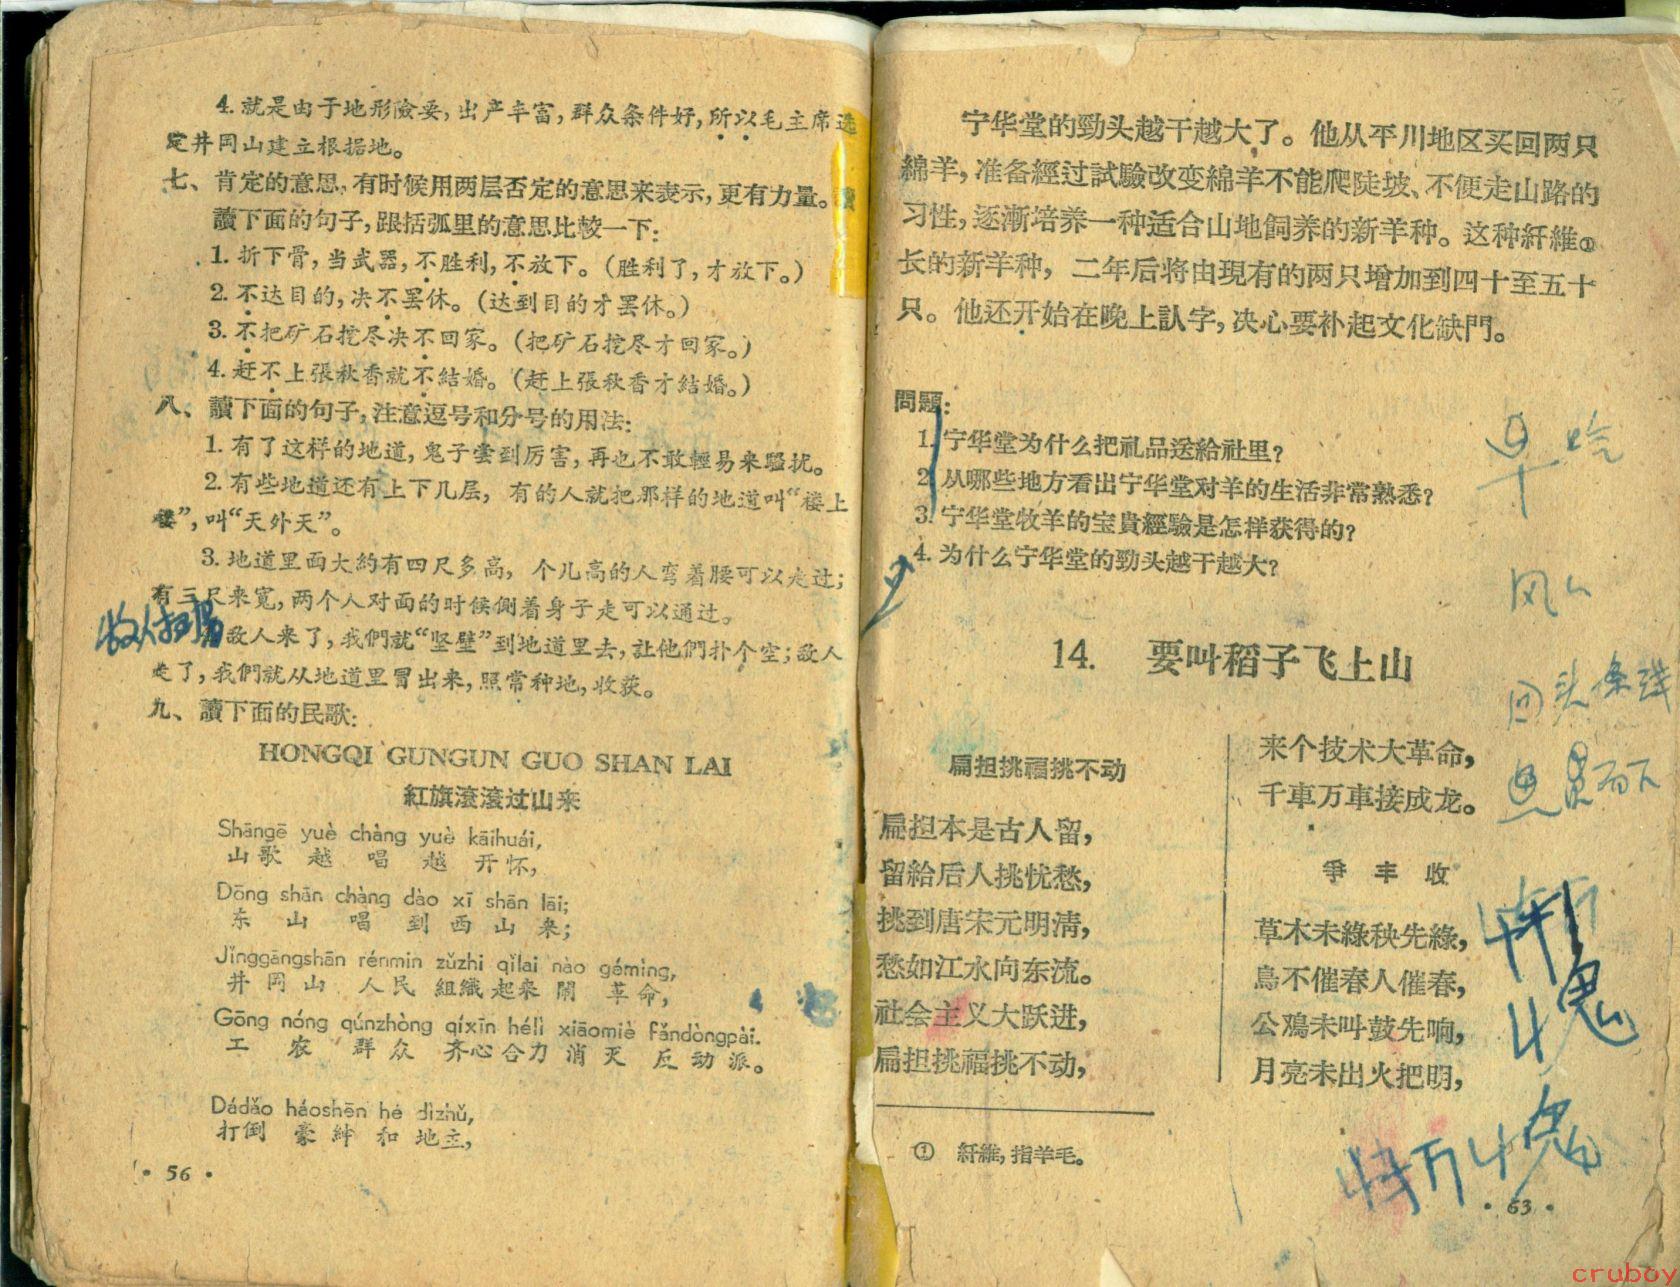 4. 就是由于地形險要，出产丰富，群众条件好，所以毛主席选
定井岡山建立根据地。
七、肯定的意思，有时候用两层否定的意思来表示，更有力量。讀
讀下面的句子，跟括弧里的意思比較一下：
1. 折下骨，当武器，不胜利，不放下。（胜利了，才放下。）
2. 不达目的，决不罢休。（达到目的才罢休。）
3. 不把矿石挖尽决不回家。（把矿石挖尽才回家。）
4. 赶不上張秋香就不結婚。（赶上張秋香才結婚。）
八、讀下面的句子，注意逗号和分号的用法：
1. 有了这样的地道，鬼子尝到厉害，再也不敢輕易来騷扰。
2. 有些地道还有上下几层，有的人就把那样的地道叫“楼上
楼”，叫“天外天”。
3. 地道里面大約有四尺多高，个儿高的人弯着腰可以走过；
有三尺来寬，两个人对面的时候側着身子走可以通过。
敌人来了，我們就“坚壁”到地道里去，让他們扑个空；敌人
走了，我們就从地道里冒出来，照常种地，收获。
九、讀下面的民歌：
HONGQI GUNGUN GUO SHAN LAI
紅旗滾滾过山来
Shāngē yuè chàng yuè kāihuái,
山歌 越 唱 越 开怀，
Dōng shān chàng dào xī shān lái;
东 山 唱 到 西 山 来；
Jǐnggāngshān rénmín zǔzhi qǐlai nào gémìng,
井 岡 山 人民 組織 起来 鬧 革命，
Gōng nóng qúnzhòng qíxīn hélì xiāomiè fǎndòngpài.
工 农 群 众 齐心合力 消 灭 反 动 派。
Dádǎo háoshēn hé dìzhǔ,
打倒 豪紳 和 地主，
· 56 ·
宁华堂的勁头越干越大了。他从平川地区买回两只
綿羊，准备經过試驗改变綿羊不能爬陡坡、不便走山路的
习性，逐漸培养一种适合山地飼养的新羊种。这种紆維①
长的新羊种，二年后将由現有的两只增加到四十至五十
只。他还开始在晚上認字，决心要补起文化缺門。
問題：
1. 宁华堂为什么把礼品送給社里？
2. 从哪些地方看出宁华堂对羊的生活非常熟悉？
3. 宁华堂牧羊的宝貴經驗是怎样获得的？
4. 为什么宁华堂的勁头越干越大？
14. 要叫稻子飞上山
扁担挑福挑不动
扁担本是古人留，
留給后人挑忧愁，
挑到唐宋元明清，
愁如江水向东流。
社会主义大跃进，
扁担挑福挑不动，
来个技术大革命，
千車万車接成龙。
爭丰收
草木未綠秧先綠，
鳥不催春人催春，
公鴉未叫鼓先响，
月亮未出火把明，
① 紆維，指羊毛。
· 63 ·
cruboy